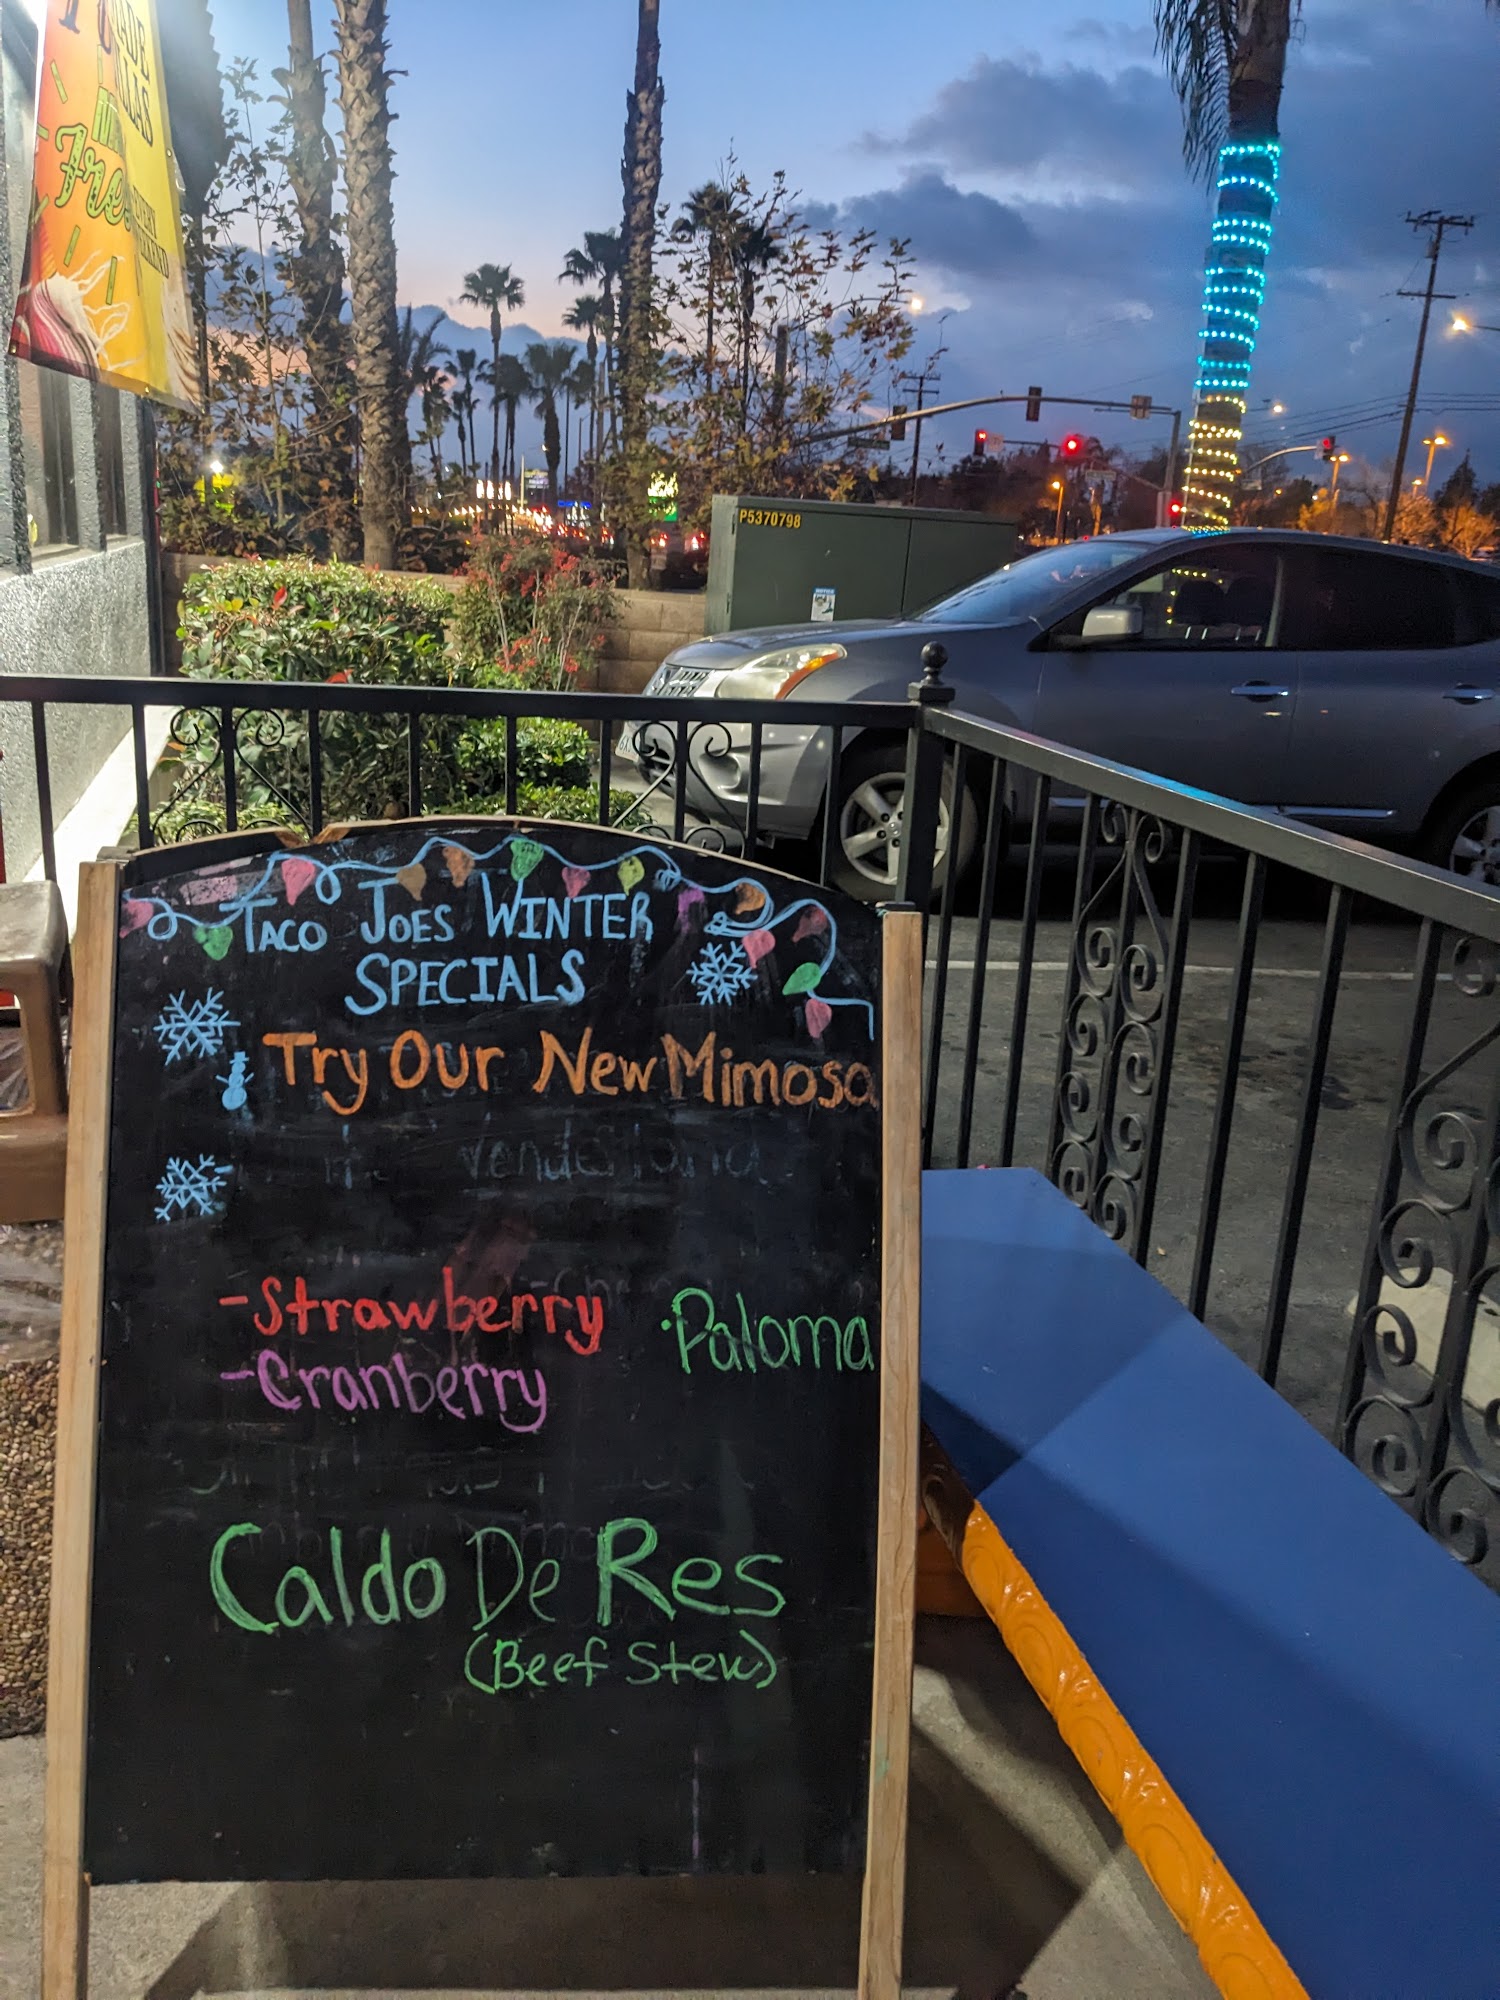 Free
P5370798
NOTICE
TACO JOES WINTER
SPECIALS
Try Our New Mimosa
-Strawberry
·Paloma
-Cranberry
Caldo De Res
(Beef Stew)